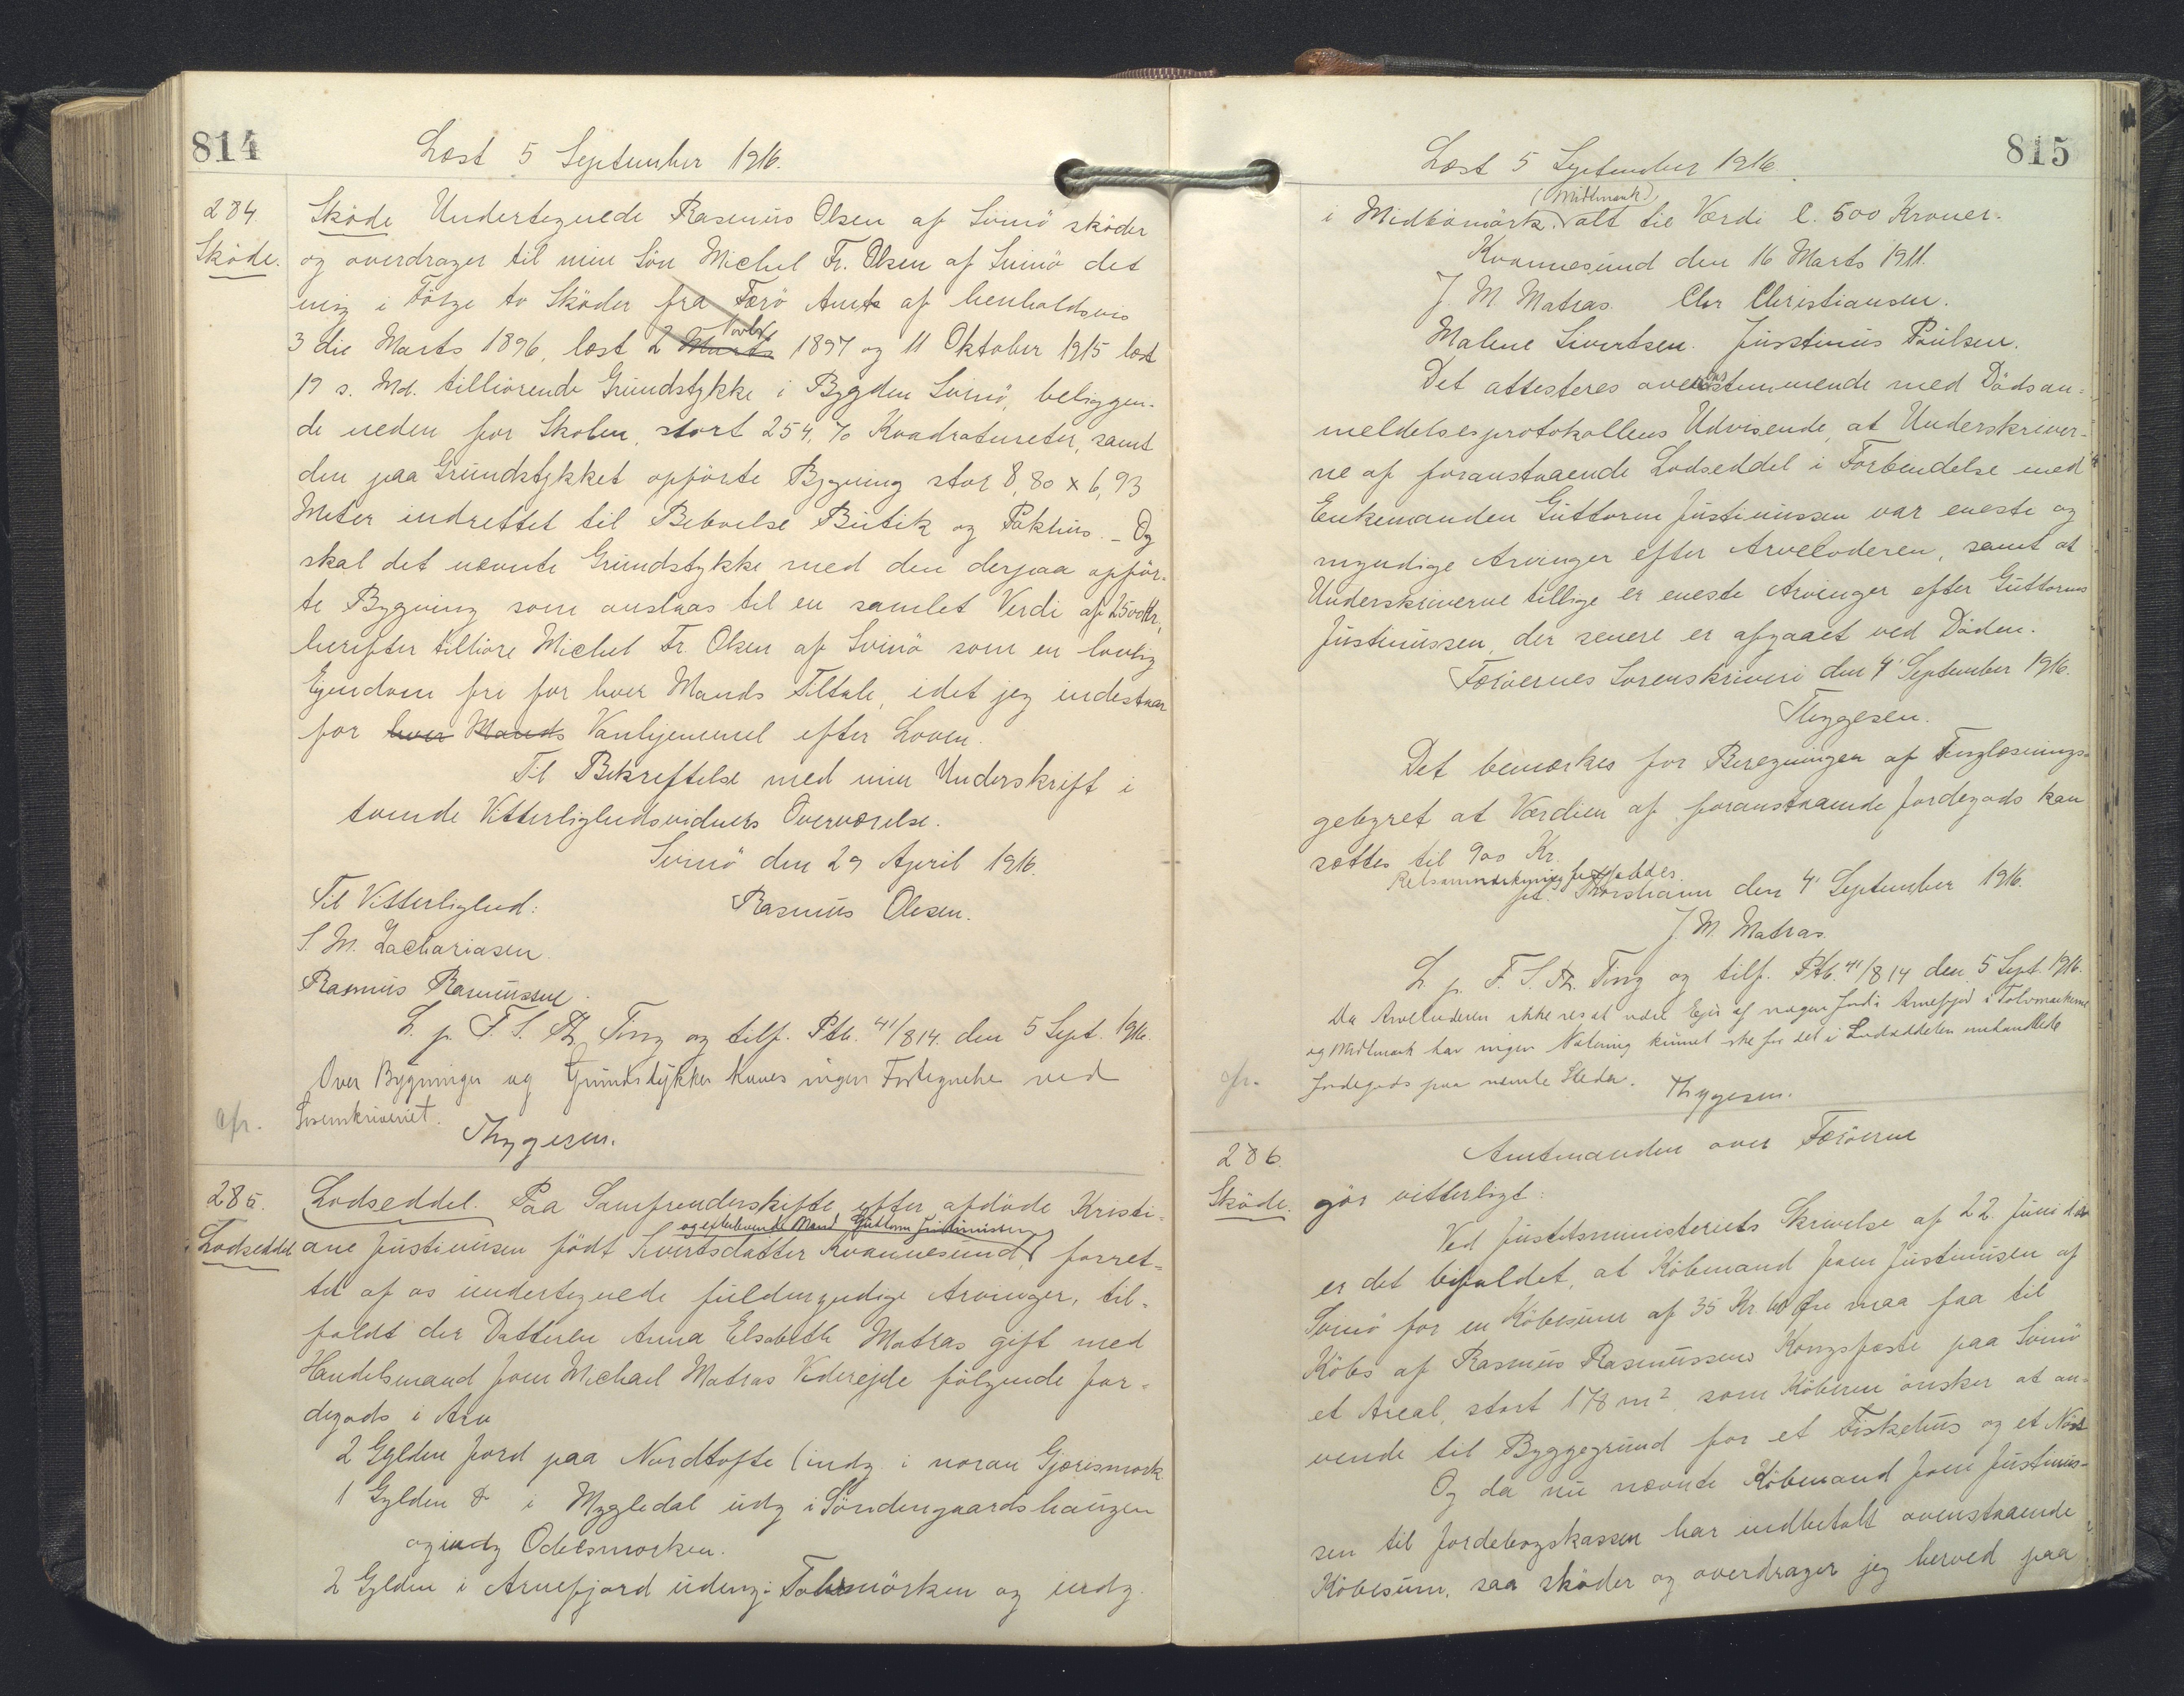 814
Læst 5 September 1916.
284.
Sköde.
Sköde Undertegnede Rasmus Olsen af Svinö sköder
og overdrager til min Sön Michel Fr. Olsen af Svinö det
mig i Fölge to Sköder fra Færö Amt af henholdsvis
3 die Marts 1896, læst 2 Marts 1897 og 11 Oktober 1915 læst
19 s. Md. tilhörende Grundstykke i Bygden Svinö, beliggen-
de neden for Skolen, stort 254,70 Kvadratmeter, samt
den paa Grundstykket opförte Bygning stor 8,80 x 6,93
Meter indrettet til Beboelse Butik og Pakhus. - Og
skal det nævnte Grundstykke med den derpaa opför-
te Bygning som anslaas til en samlet Verdi af 2500 Kr.,
herefter tilhöre Michel Fr. Olsen af Svinö som en lovlig
Ejendom fri for hver Mands Tiltale, idet jeg indestaar
for hver Mands Vanhjemmel efter Loven.
Til Bekreftelse med min Underskrift i
tvende Vitterlighedsvidners Overværelse.
Svinö den 29 April 1916.
Til Vitterlighed: Rasmus Olsen.
S. M. Zachariasen.
Rasmus Rasmussen.
L. p. F. S. Th. Ting og tilf. Ptb. 41/814. den 5 Sept. 1916.
Over Bygninger og Grundstykker haves ingen Fortegnelse ved
Sorenskriveriet.
Thygesen.
cfr.
285.
Lodseddel
Lodseddel. Paa Samfrenderskifte efter afdöde Kristi-
og efterlevende Mand Guttorm Justinussen
ane Justinusen födt Sivertsdatter Kvannesund, forret-
tet af os undertegnede fuldmyndige Arvinger, til-
faldt der Datteren Anna Elsabeth Matras gift med
Handelsmand Joen Michael Matras Viderejde fölgende Jor-
degods i Arv
2 Gylden Jord paa Nordtofte (indg. i noran Gjærismork
1 Gylden do i Mygledal udg i Söndengaardshaugen
og indg Odelsmorken.
2 Gylden i Arnefjord udeng: Tolvmörken og indg.
815
Læst 5 September 1916.
(Midtmark)
i Midbömörk. alt til Værdi c. 500 Kroner.
Kvannesund den 16 Marts 1911.
J. M. Matras. Chr Christiansen.
Malene Sivertsen. Justinus Poulsen.
Det attesteres overensstemmende med Dödsan-
meldelsesprotokollens Udvisende, at Underskriver-
ne af foranstaaende Lodseddel i Forbindelse med
Enkemanden Guttorm Justinussen var eneste og
myndige Arvinger efter Arveladeren, samt at
Underskriverne tillige er eneste Arvinger efter Guttorm
Justinussen, der senere er afgaaet ved Döden.
Færöernes Sorenskriveri den 4' September 1916.
Thygesen.
Det bemærkes for Beregningen af Tinglæsnings-
gebyret at Værdien af foranstaaende Jordegods kan
sættes til 900 Kr.
Retsanmærkning frafaldes.
pt. Thorshavn den 4' September 1916.
J. M. Matras.
L. p. F. S. Th. Ting og tilf. Ptb. 41/814 den 5 Sept. 1916.
Da Arveladeren ikke ses at være Ejer af nogen Jord i Arnefjord i Tolvmarkerne
og Midtmark har ingen Notering kunnet ske for det i Lodseddelen omhandlede
Jordegods paa nævnte Steder. Thygesen.
cfr.
286.
Sköde.
Amtmanden over Færöerne
gör vitterligt:
Ved Justitsministeriets Skrivelse af 22. Juni d.A.
er det bifaldet, at Köbmand Joen Justinusen af
Svinö for en Köbesum af 35 Kr 60 Öre maa faa til
Köbs af Rasmus Rasmussens Kongsfæste paa Svinö
et Areal, stort 178 m2, som Köberen önsker at an-
vende til Byggegrund for et Fiskehus og et Nöst
Og da nu nævnte Köbmand Joen Justinus-
sen til Jordebogskassen har indbetalt ovenstaaende
Köbesum, saa sköder og overdrager jeg herved paa